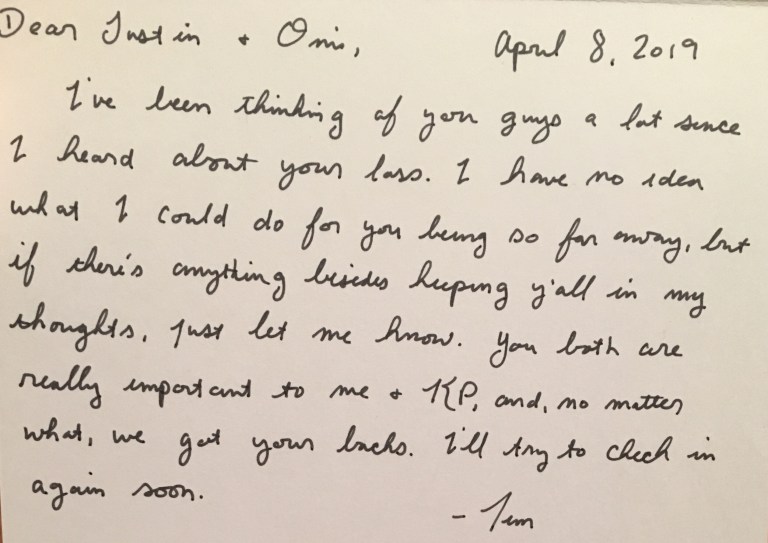 Dear Justin + Omi, April 8, 2019
I've been thinking of you guys a lot since
I heard about your loss. I have no idea
what I could do for you being so far away, but
if there's anything besides keeping y'all in my
thoughts, just let me know. You both are
really important to me + KP, and, no matter
what, we got your backs. I'll try to check in
again soon.
- Tim